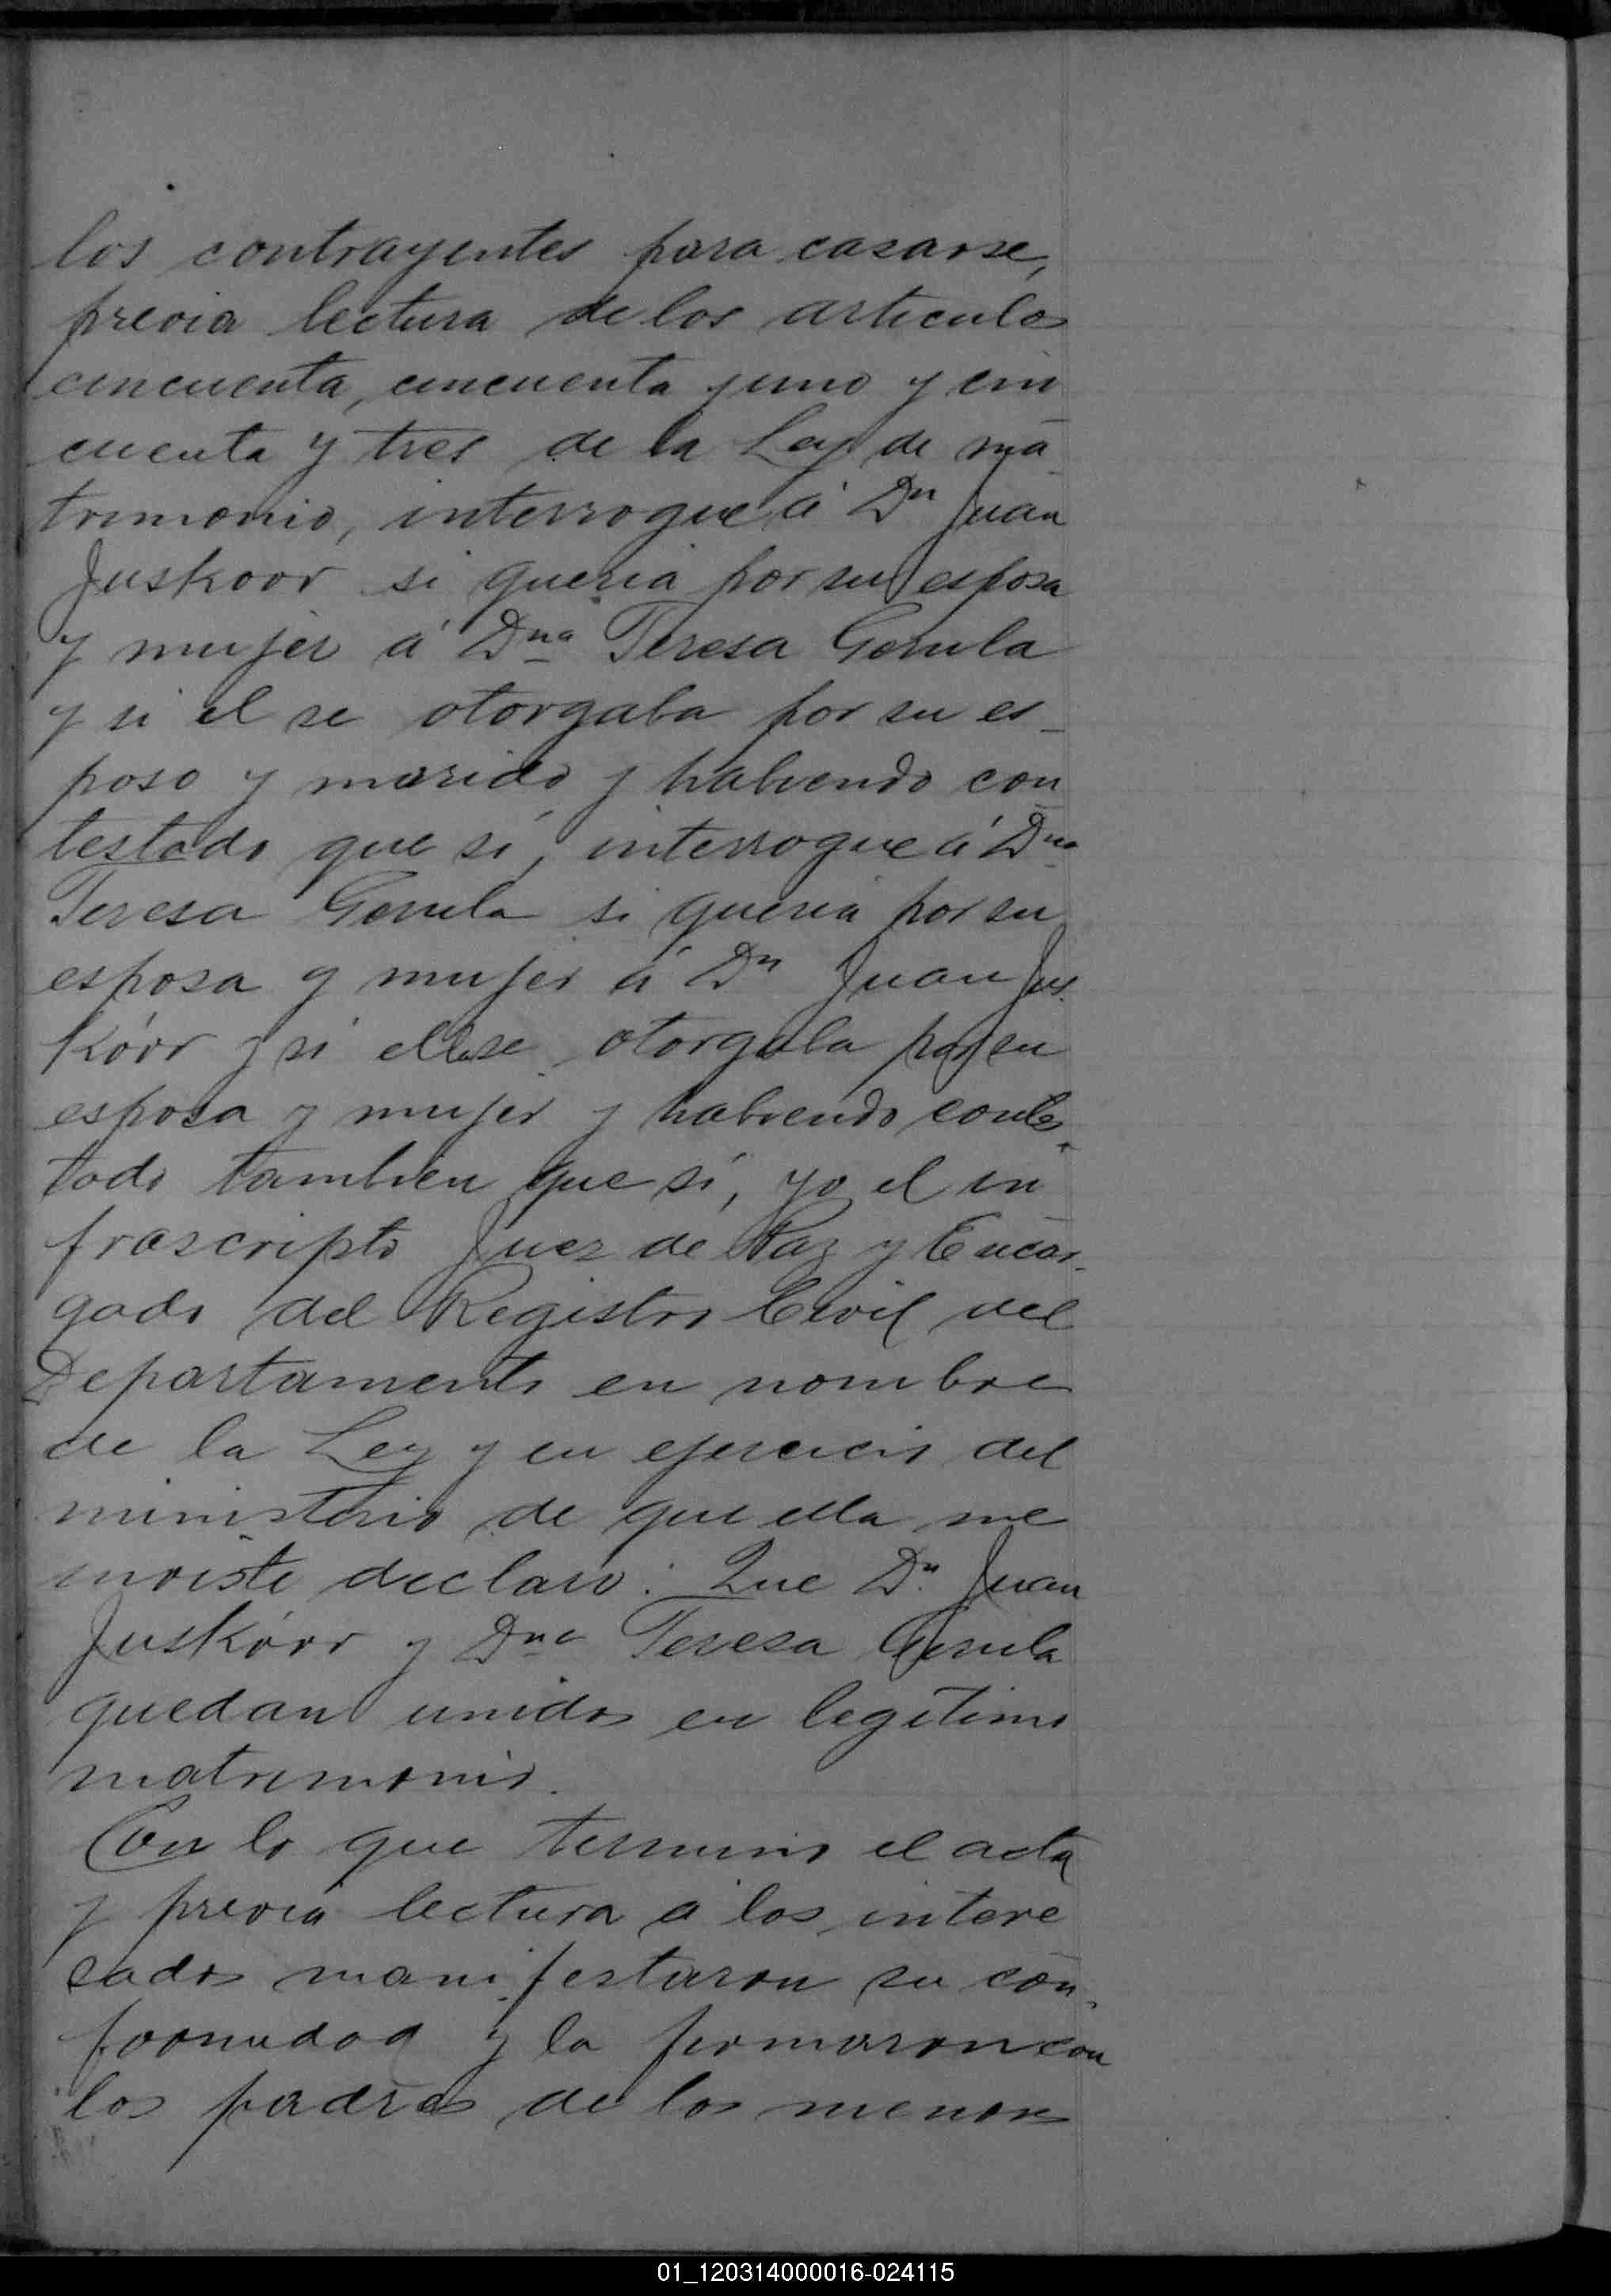 los contrayentes para casarse,
previa lectura de los articulos
cincuenta, cincuenta y uno y cin
cuenta y tres de la Ley de ma
trimonio, interrogue á Dn Juan
Juskoor si queria por su esposa
y mujer á Dna Teresa Gerula
y si el se otorgaba por su es_
poso y marido y habiendo con
testado que sí, interrogue á Dna
Teresa Gerula si queria por su
esposa y mujer á Dn Juan Jus
kóor y si ella se otorgaba por su
esposa y mujer y habiendo contes_
tado tambien que sí, yo el in
frascripto Juez de Paz y Encar_
gado del Registro Civil del
Departamento en nombre
de la Ley y en ejercicio del
ministerio de que ella me
inviste declaro: Que Dn. Juan
Juskóor y Dna Teresa Gerula
quedan unidos en legítimo
matrimonio.
Con lo que termino el acta
y previa lectura á los intere
sados manifestaron su con_
formidad y la firmaron con
los padres de los menores
01_120314000016-024115